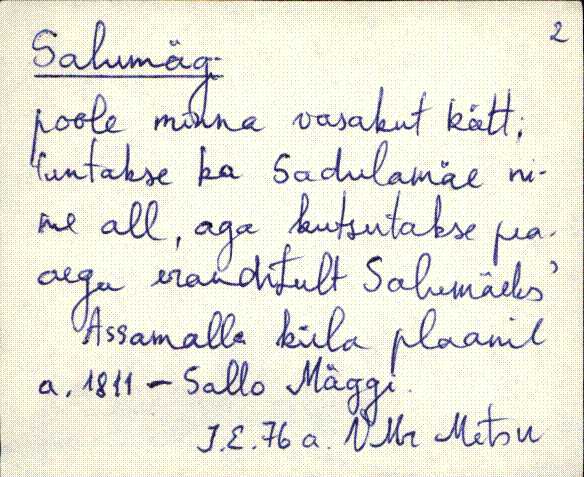 2
Salumäg
poole minna vasakut kätt;
tuntakse ka Sadulamäe ni-
me all, aga kutsutakse pea-
aegu eranditult Salumäeks'
Assamalla küla plaanil
a. 1811 – Sallo Mäggi.
J.E. 76 a. VMr Metsu